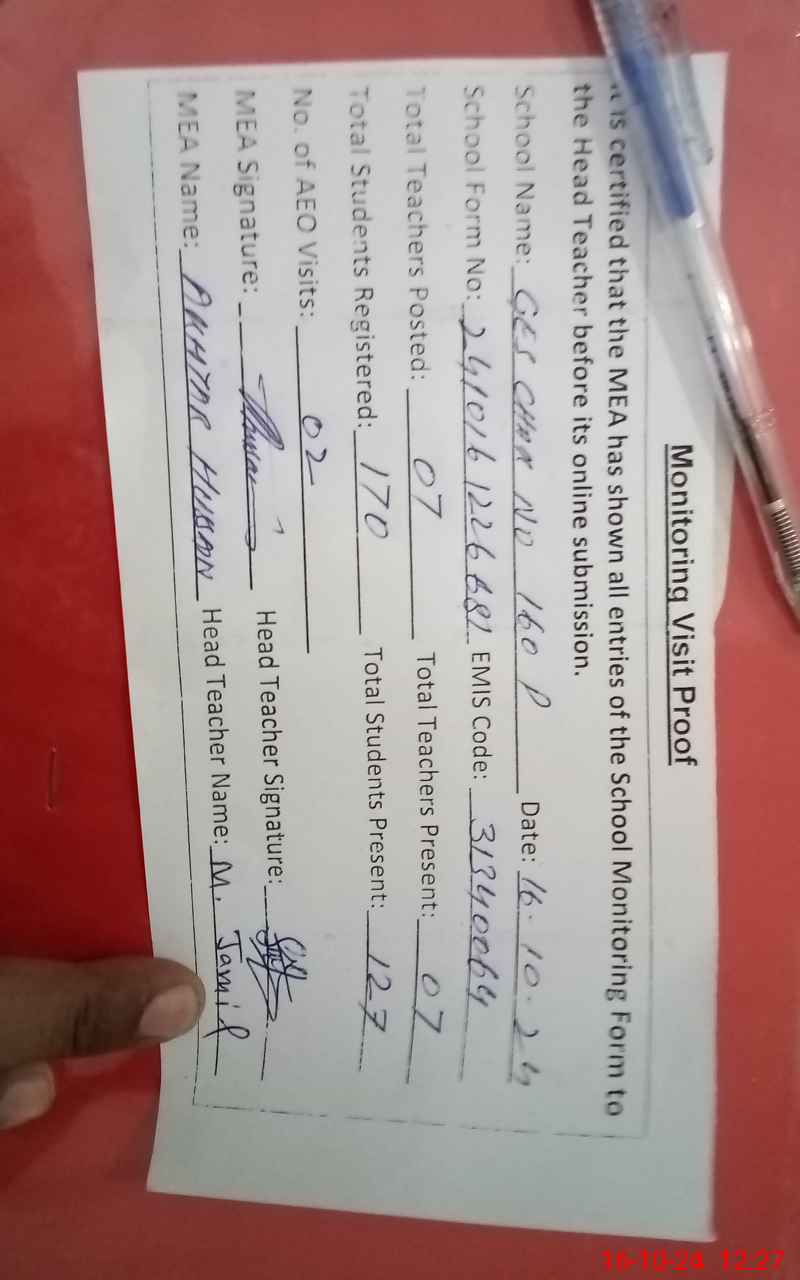 Monitoring Visit Proof
It is certified that the MEA has shown all entries of the School Monitoring Form to
the Head Teacher before its online submission.
School Name: GES CHAK NO 160 P Date: 16-10-24
School Form No: 241016 1226 681 EMIS Code: 31340064
Total Teachers Posted: 07 Total Teachers Present: 07
Total Students Registered: 170 Total Students Present: 127
No. of AEO Visits: 02
MEA Signature: Head Teacher Signature:
MEA Name: AKHTAR HUSSAN Head Teacher Name: M. Jamil
16-10-24 12:27